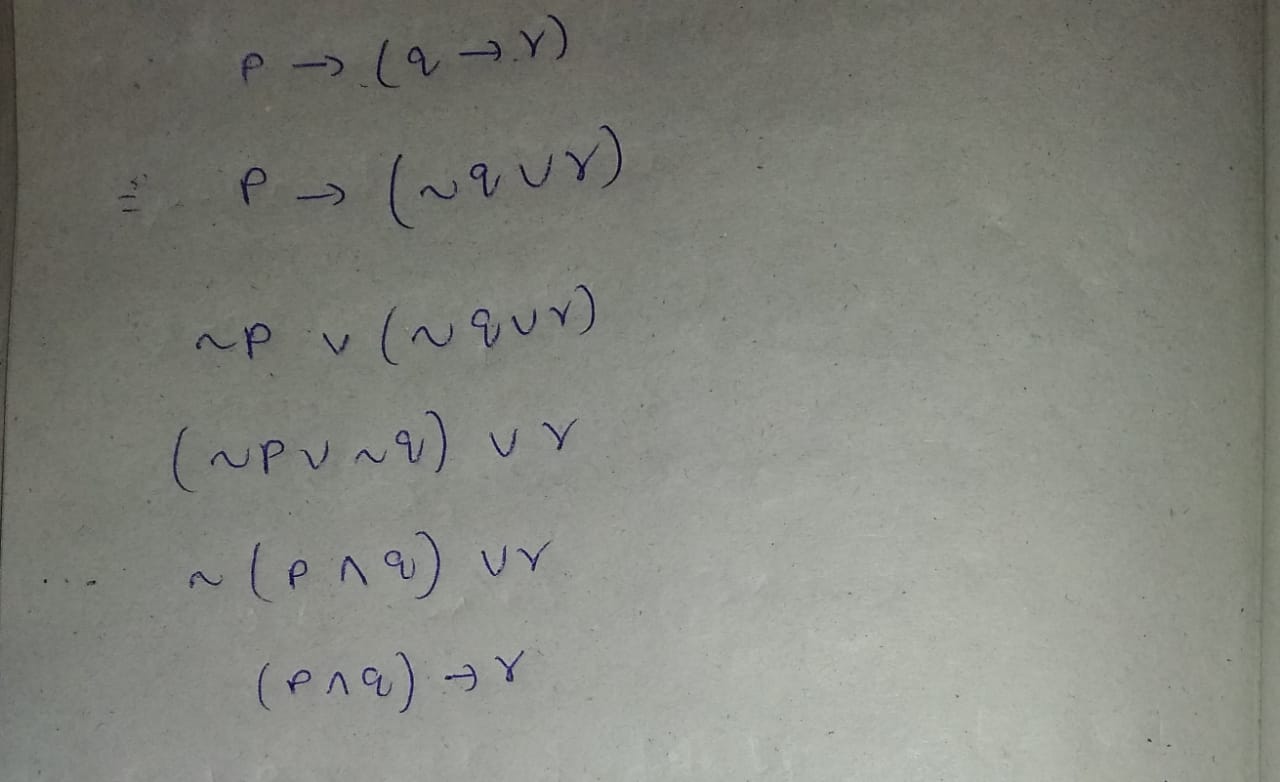 p → (q → r)
≡ p → (~q ∨ r)
~p ∨ (~q ∨ r)
(~p ∨ ~q) ∨ r
... ~(p ∧ q) ∨ r
(p ∧ q) → r